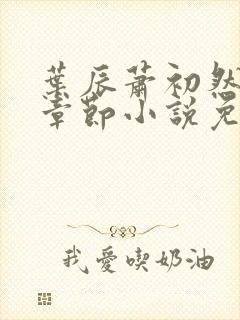 葉辰蕭初然
章節小說免
我愛喫奶油